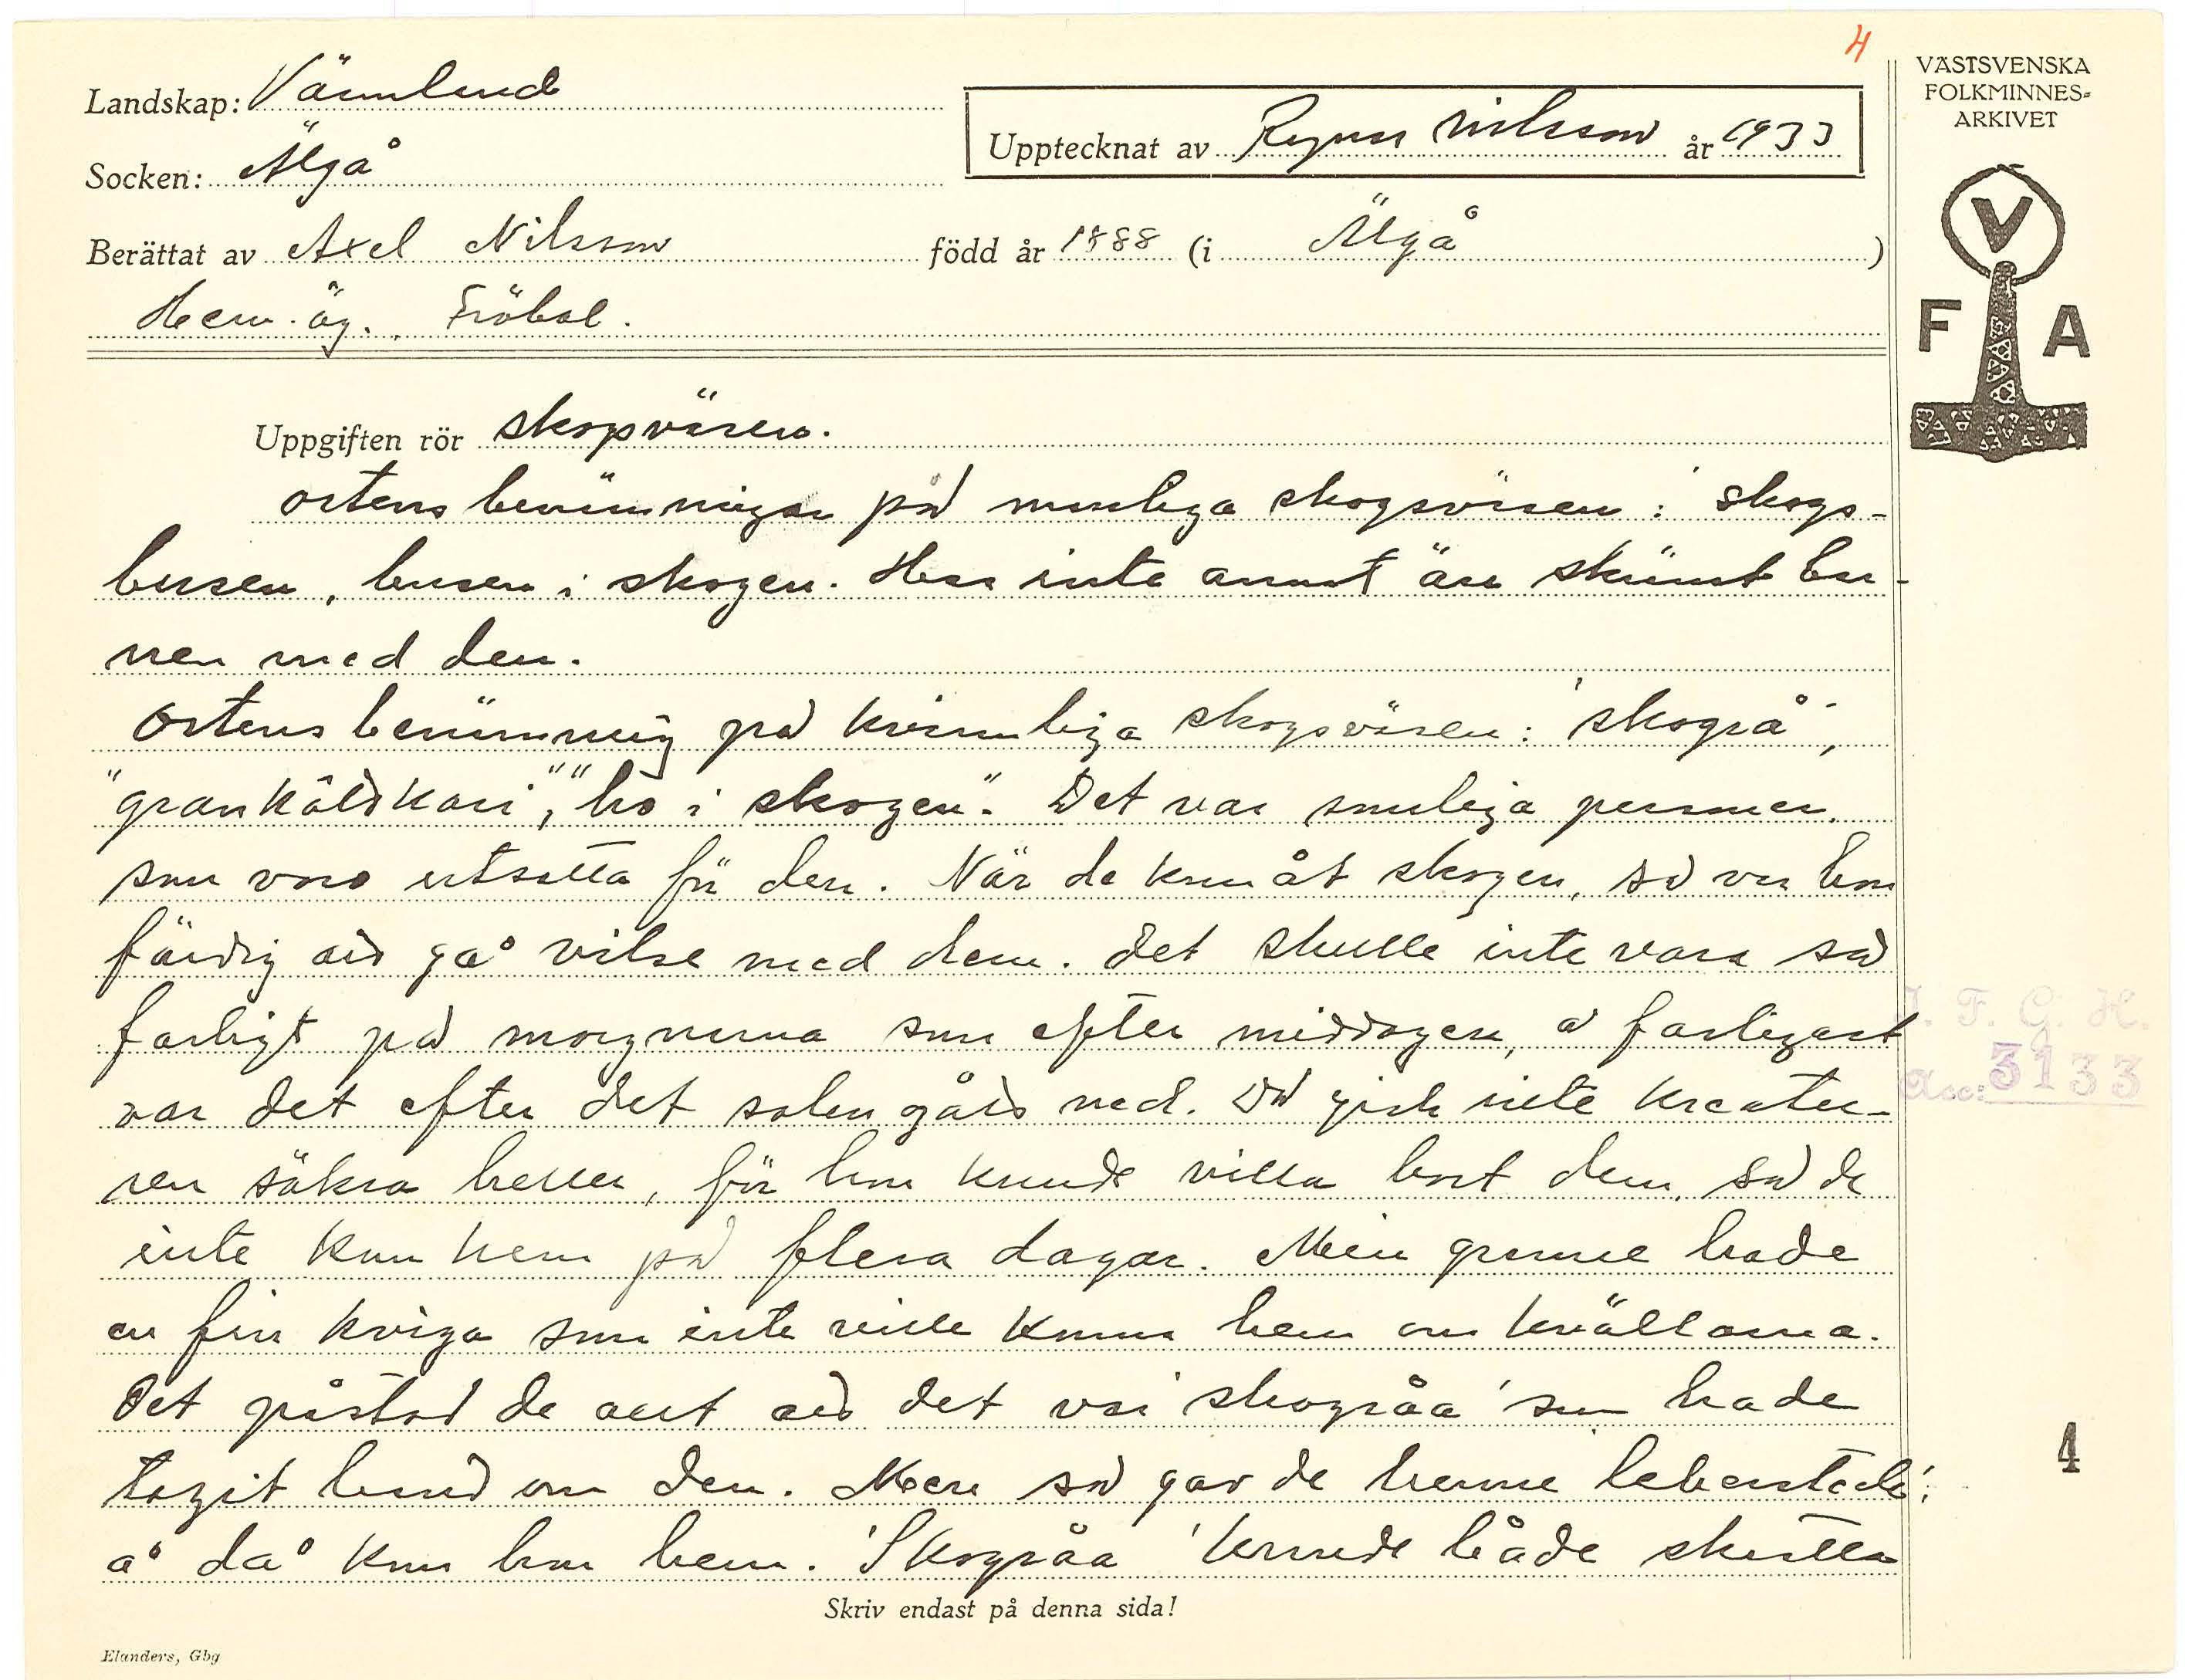 4
Landskap: Värmland
VÄSTSVENSKA
FOLKMINNES=
ARKIVET
Upptecknat av Ragnar Nilsson år 1933
Socken: Älgå
Berättat av Axel Nilsson född år 1888 (i Älgå )
Hem.äg. Fröbol.
V
F A
Uppgiften rör skogsväsen.
ortens benämningar på manliga skogsväsen: 'skogs-
busen, busen i skogen. Har inte annat än skrämt bar-
nen med den.
Ortens benämning på kvinnliga skogsväsen: 'skogrå',
"grankôldkari", "ho i skogen". Det var somliga personer,
som voro utsatta för den. När de kom åt skogen, så var hon
färdig aid gå vilse med dem. Det skulle inte vara så
farligt på morgnarna som efter middagen, å farligast
var det efter det solen gåid ned. Då gick inte kreatu-
ren säkra heller, för hon kunde villa bort dem, så de
inte kom hem på flera dagar. Min granne hade
en fin kviga som inte ville komma hem om kvällarna.
Det påstod de allt aid det var 'skogråa' som hade
tagit hand om den. Men så gav de henne 'leberstedi',
å då kom hon hem. 'Skogråa' kunde både skratta
J. F. G. H.
Acc: 3133
4
Skriv endast på denna sida!
Elanders, Gbg